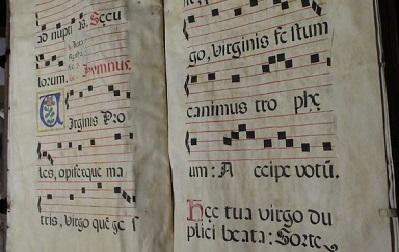 ad nupti as. Secu
lorum. Hymnus.
Virginis Pro
les, opifexque ma
tris, Virgo quē ges s
go, virginis festum
canimus tro phę
um: A ccipe votū.
Hęc tua virgo du
plici beata: Sorte